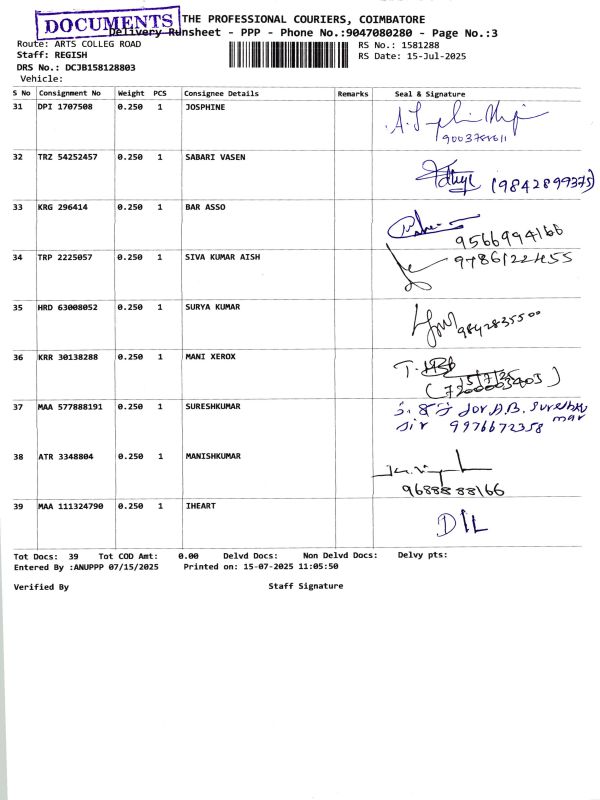 DOCUMENTS
THE PROFESSIONAL COURIERS, COIMBATORE
Delivery Runsheet - PPP - Phone No.:9047080280 - Page No.:3
Route: ARTS COLLEG ROAD
RS No.: 1581288
Staff: REGISH
RS Date: 15-Jul-2025
DRS No.: DCJB158128803
Vehicle:
S No Consignment No Weight PCS Consignee Details Remarks Seal & Signature
31 DPI 1707508 0.250 1 JOSPHINE
32 TRZ 54252457 0.250 1 SABARI VASEN
(9842899375)
33 KRG 296414 0.250 1 BAR ASSO
9566994166
34 TRP 2225057 0.250 1 SIVA KUMAR AISH
9786122455
35 HRD 63008052 0.250 1 SURYA KUMAR
9842835500
36 KRR 30138288 0.250 1 MANI XEROX
15/7/25
37 MAA 577888191 0.250 1 SURESHKUMAR
for A.B. Sureshku
mar
sir 9976672358
38 ATR 3348804 0.250 1 MANISHKUMAR
9688888166
39 MAA 111324790 0.250 1 IHEART
DIL
Tot Docs: 39 Tot COD Amt: 0.00 Delvd Docs: Non Delvd Docs: Delvy pts:
Entered By :ANUPPP 07/15/2025 Printed on: 15-07-2025 11:05:50
Verified By Staff Signature